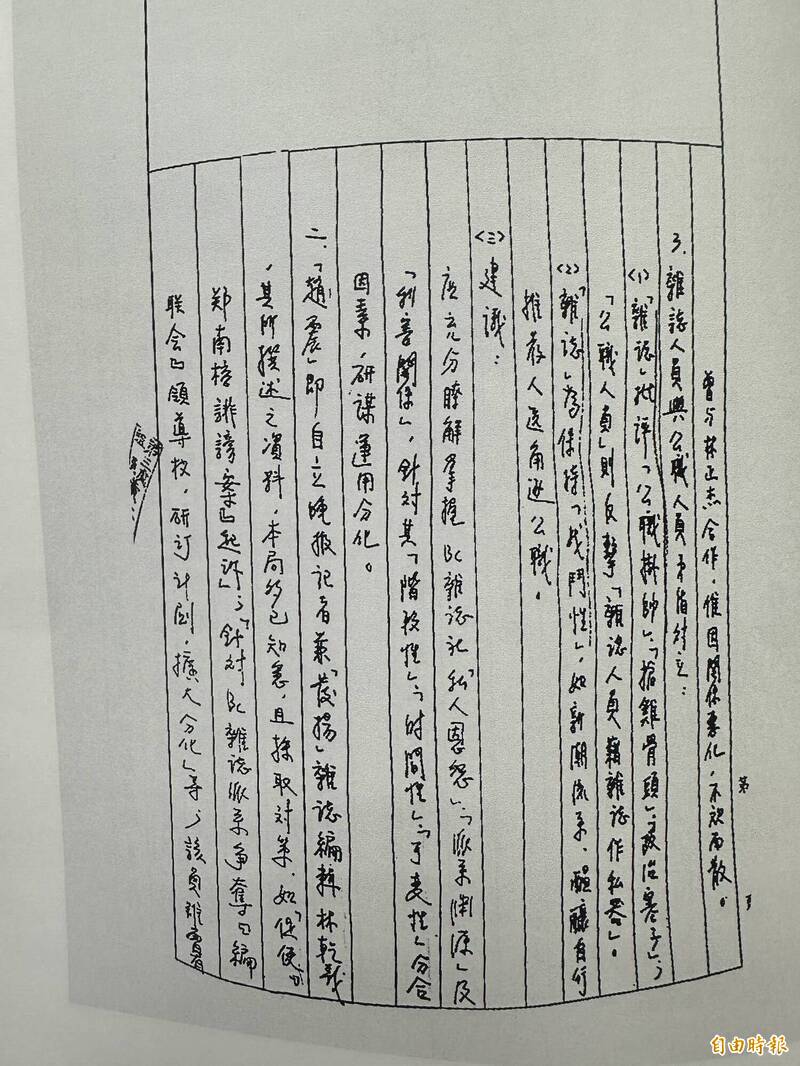 第 頁
曾与林正杰合作，惟因關係惡化，不欢而散。
3.雜誌人員與公職人員矛盾对立：
⑴「雜誌」批评「公職掛帥」、「搶雞骨頭」、「政治募子」；
「公職人員」則反擊「雜誌人員藉雜誌作私器」。
⑵「雜誌」為保持「战鬥性」，如新潮流系，醞釀自行
推荐人选角逐公職。
㈢建議：
应充分瞭解掌握BC雜誌社「私人恩怨」、「派系淵源」及
「利害關係」，針对其「階段性」、「时間性」、「可变性」分合
因素，研謀運用分化。
二、「趙震」即自立晚报记者兼「發揚」雜誌編輯林乾義
，其所撰述之資料，本局多已知悉，且採取对策，如「促使
郑南榕誹謗案』起訴」；「針对BC雜誌派系争奪『編
联会』領導权，研订计劃，擴大分化」等；該員雖曾
自由時報